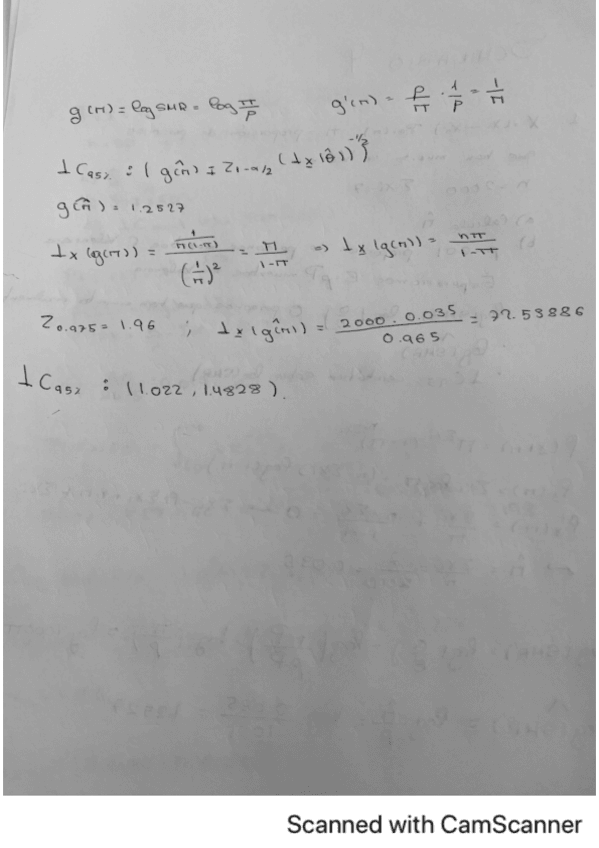 g(π) = log SMR = log π/p g'(π) = p/π · 1/p = 1/π
IC95% : ( g(π̂) ∓ Z1-α/2 (Ix(θ̂))^-1/2 )
g(π̂) = 1.2527
Ix (g(π)) = (1/(π(1-π)))/(1/π)² = π/(1-π) ⇒ Ix (g(π)) = nπ/(1-π)
Z0.975 = 1.96 ; Ix (g(π̂)) = (2000 · 0.035)/0.965 = 72.53886
IC95% : (1.022, 1.4828).
Scanned with CamScanner